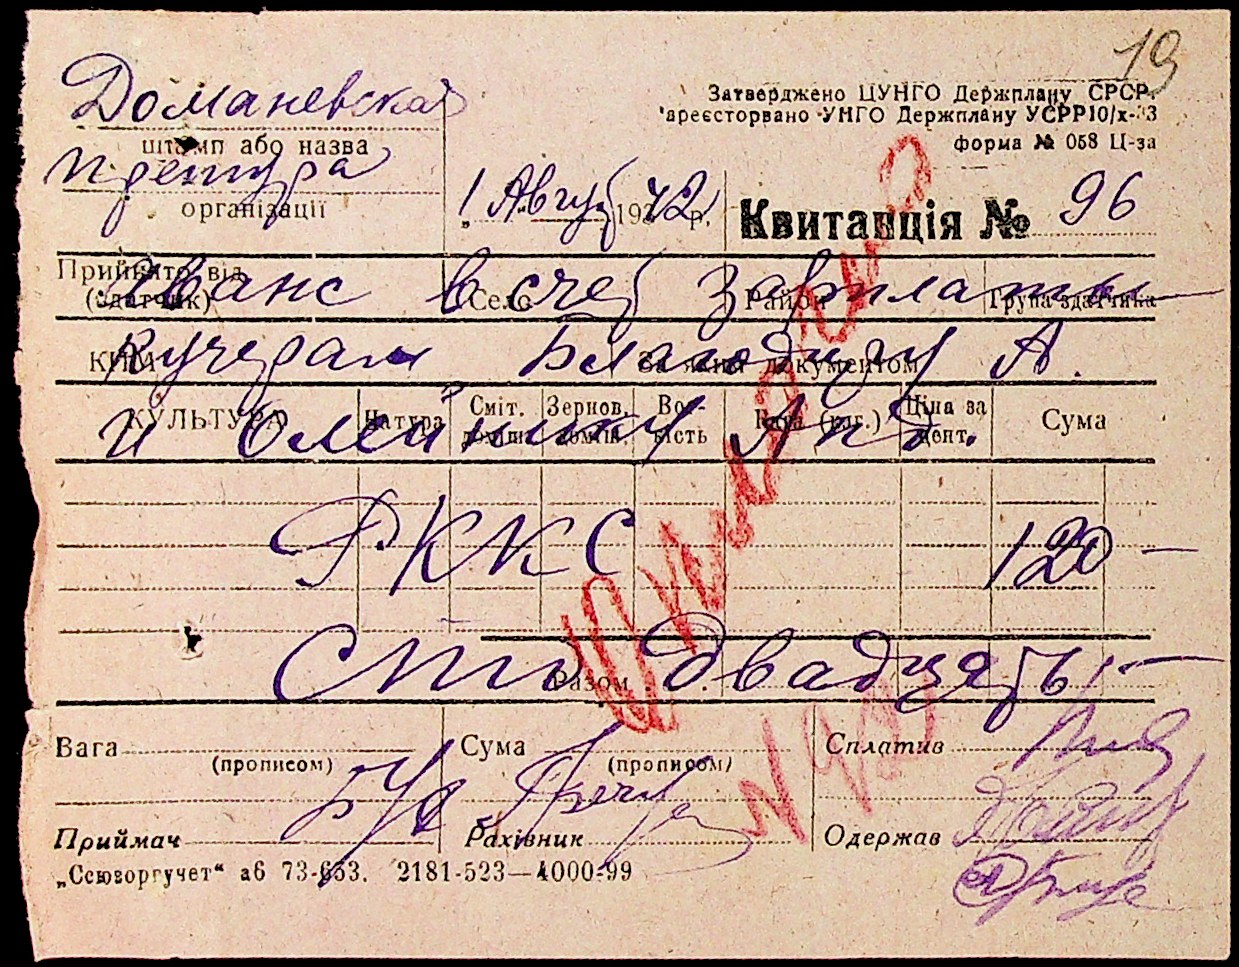 19
Доманевская
Затверджено ЦУНГО Держплану СРСР.
Зареєсторвано УНГО Держплану УСРР 10/х-33
штамп або назва
форма № 058 Ц-за
претура
організації
„1 Август 1942 р.
Квитанція № 96
Прийнято від
(здатчик) Село Район Група здатчика
Аванс в счет зарплаты
КНМ За яким документом
Кучерам А.
КУЛЬТУРА Натура Сміт. домішк. Зернов. доміш. Вогкість Вага (кіг.) Ціна за цент. Сума
и Олейнику Анд.
РККС 120 —
Разом
Сто двадцать —
Вага (прописом) Сума (прописом) Сплатив
Приймач Рахівник Одержав
„Союзоргучет“ аб 73-653. 2181-523—4000-99